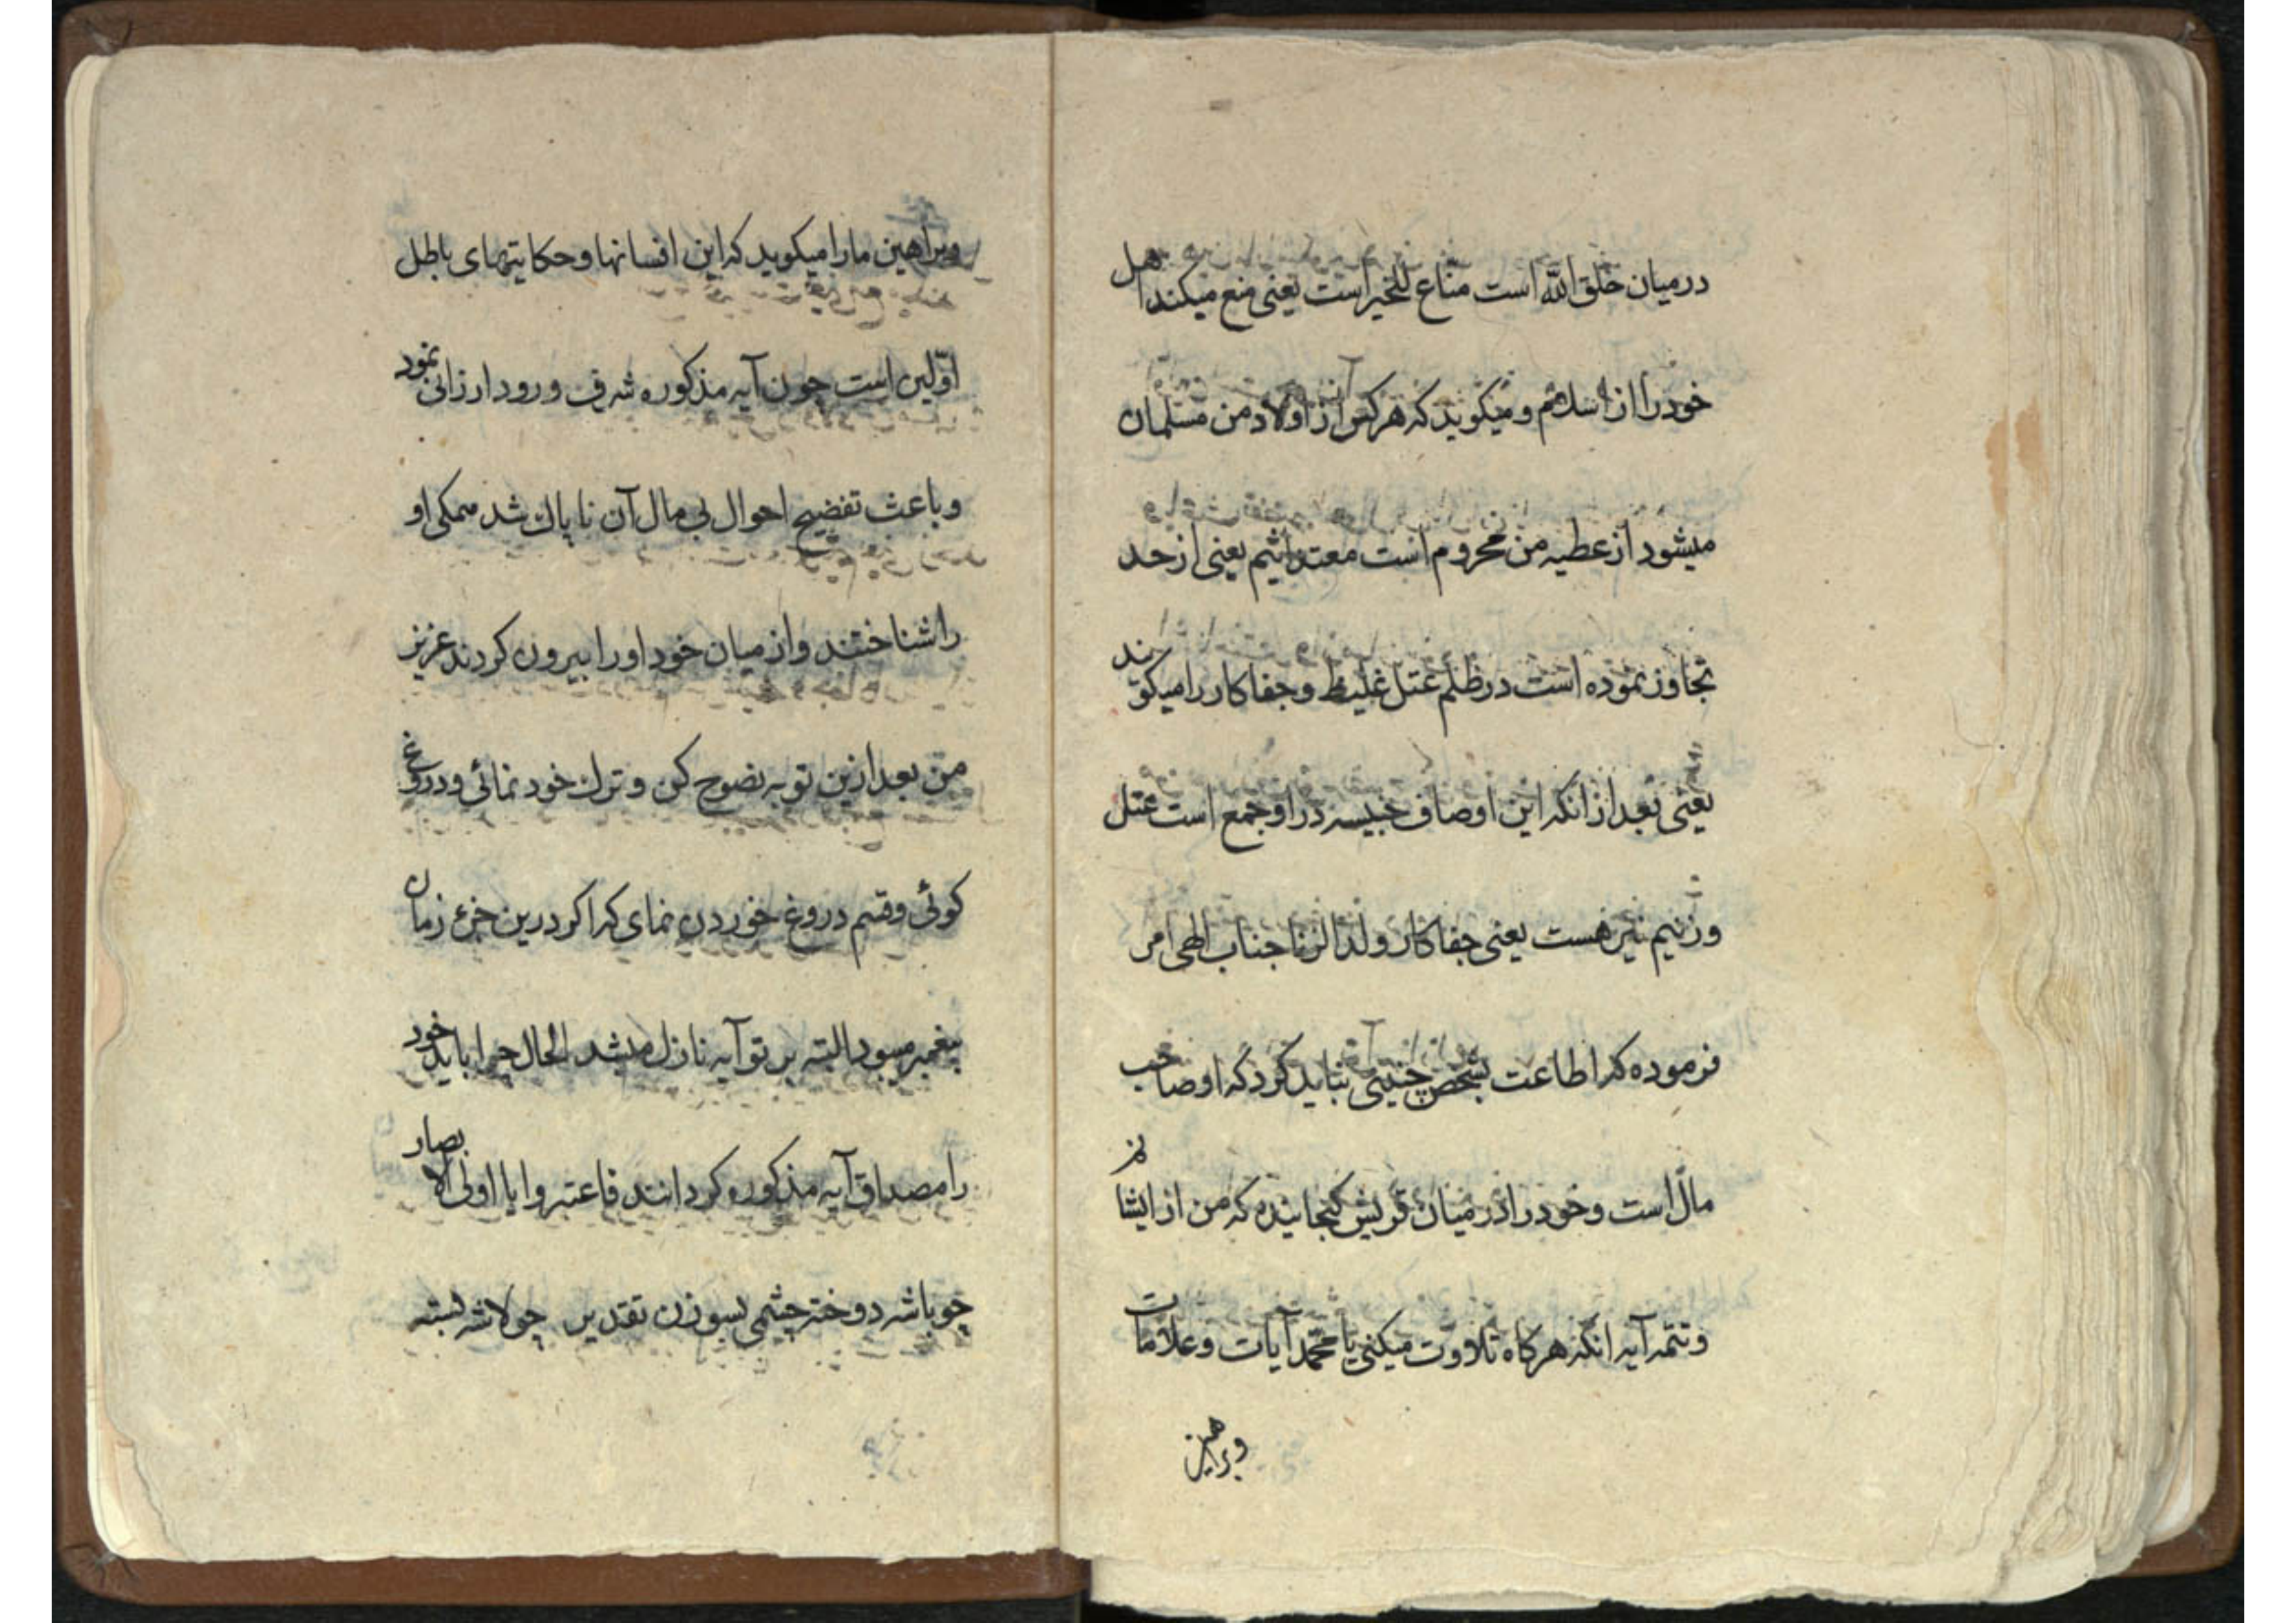 درمیان خلق الله است مناع للخیر است یعنی منع میکند اهل
خود را از اسلام و میکوید که هرکس از اولاد من مسلمان
میشود از عطیه من محروم است معتد اثیم یعنی از حد
تجاوز نموده است در ظلم عتل غلیظ و جفا کار را میکویند
یعنی بعد از انکه این اوصاف خبیسه در او جمع است عتل
و زنیم نیز هست یعنی جفا کار ولد الزنا جناب الهی امر
فرموده که اطاعت شخص چنینی نباید کرد که او صاحب
مال است و خود را در میان قریش کنجانیده که من از ایشانم
و تتمه آیه انکه هر کاه تلاوت میکنی یا محمد آیات و علامات
وبراهین
وبراهین ما را میکوید که این افسانها و حکایتهای باطل
اوّلین است چون آیه مذکوره شرف ورود ارزانی نمود
و باعث تفضیح احوال بی مال آن ناپاك شد همکی او
را شناختند و از میان خود او را بیرون کردند عزیز
من بعد ازین توبه نصوح کن و ترك خود نمائی و دروغ
کوئی و قسم دروغ خوردن نمای که اکر درین جزء زمان
پیغمبر میبود البته بر تو آیه نازل میشد الحال چرا باید خود
را مصداق آیه مذکوره کردانند فاعتبروا یا اولی الابصار
چو باشد دوخته چشمی بسوزن تقدیر چو لاشه بسته